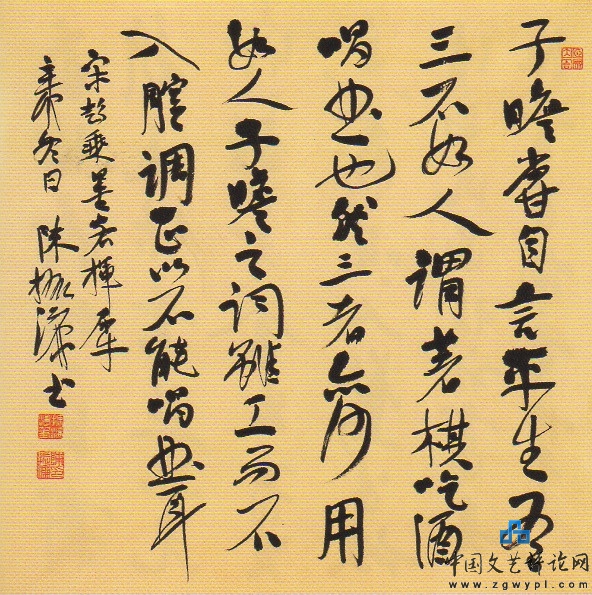 子瞻甞自言平生有
三不如人謂著棋吃酒
唱曲也然三者亦何用
如人子瞻之詞雖工而不
入腔調正以不能唱曲耳
宋彭乘墨客揮犀
冬日 陳振濂书
中国文艺评论网
www.zgwypl.com